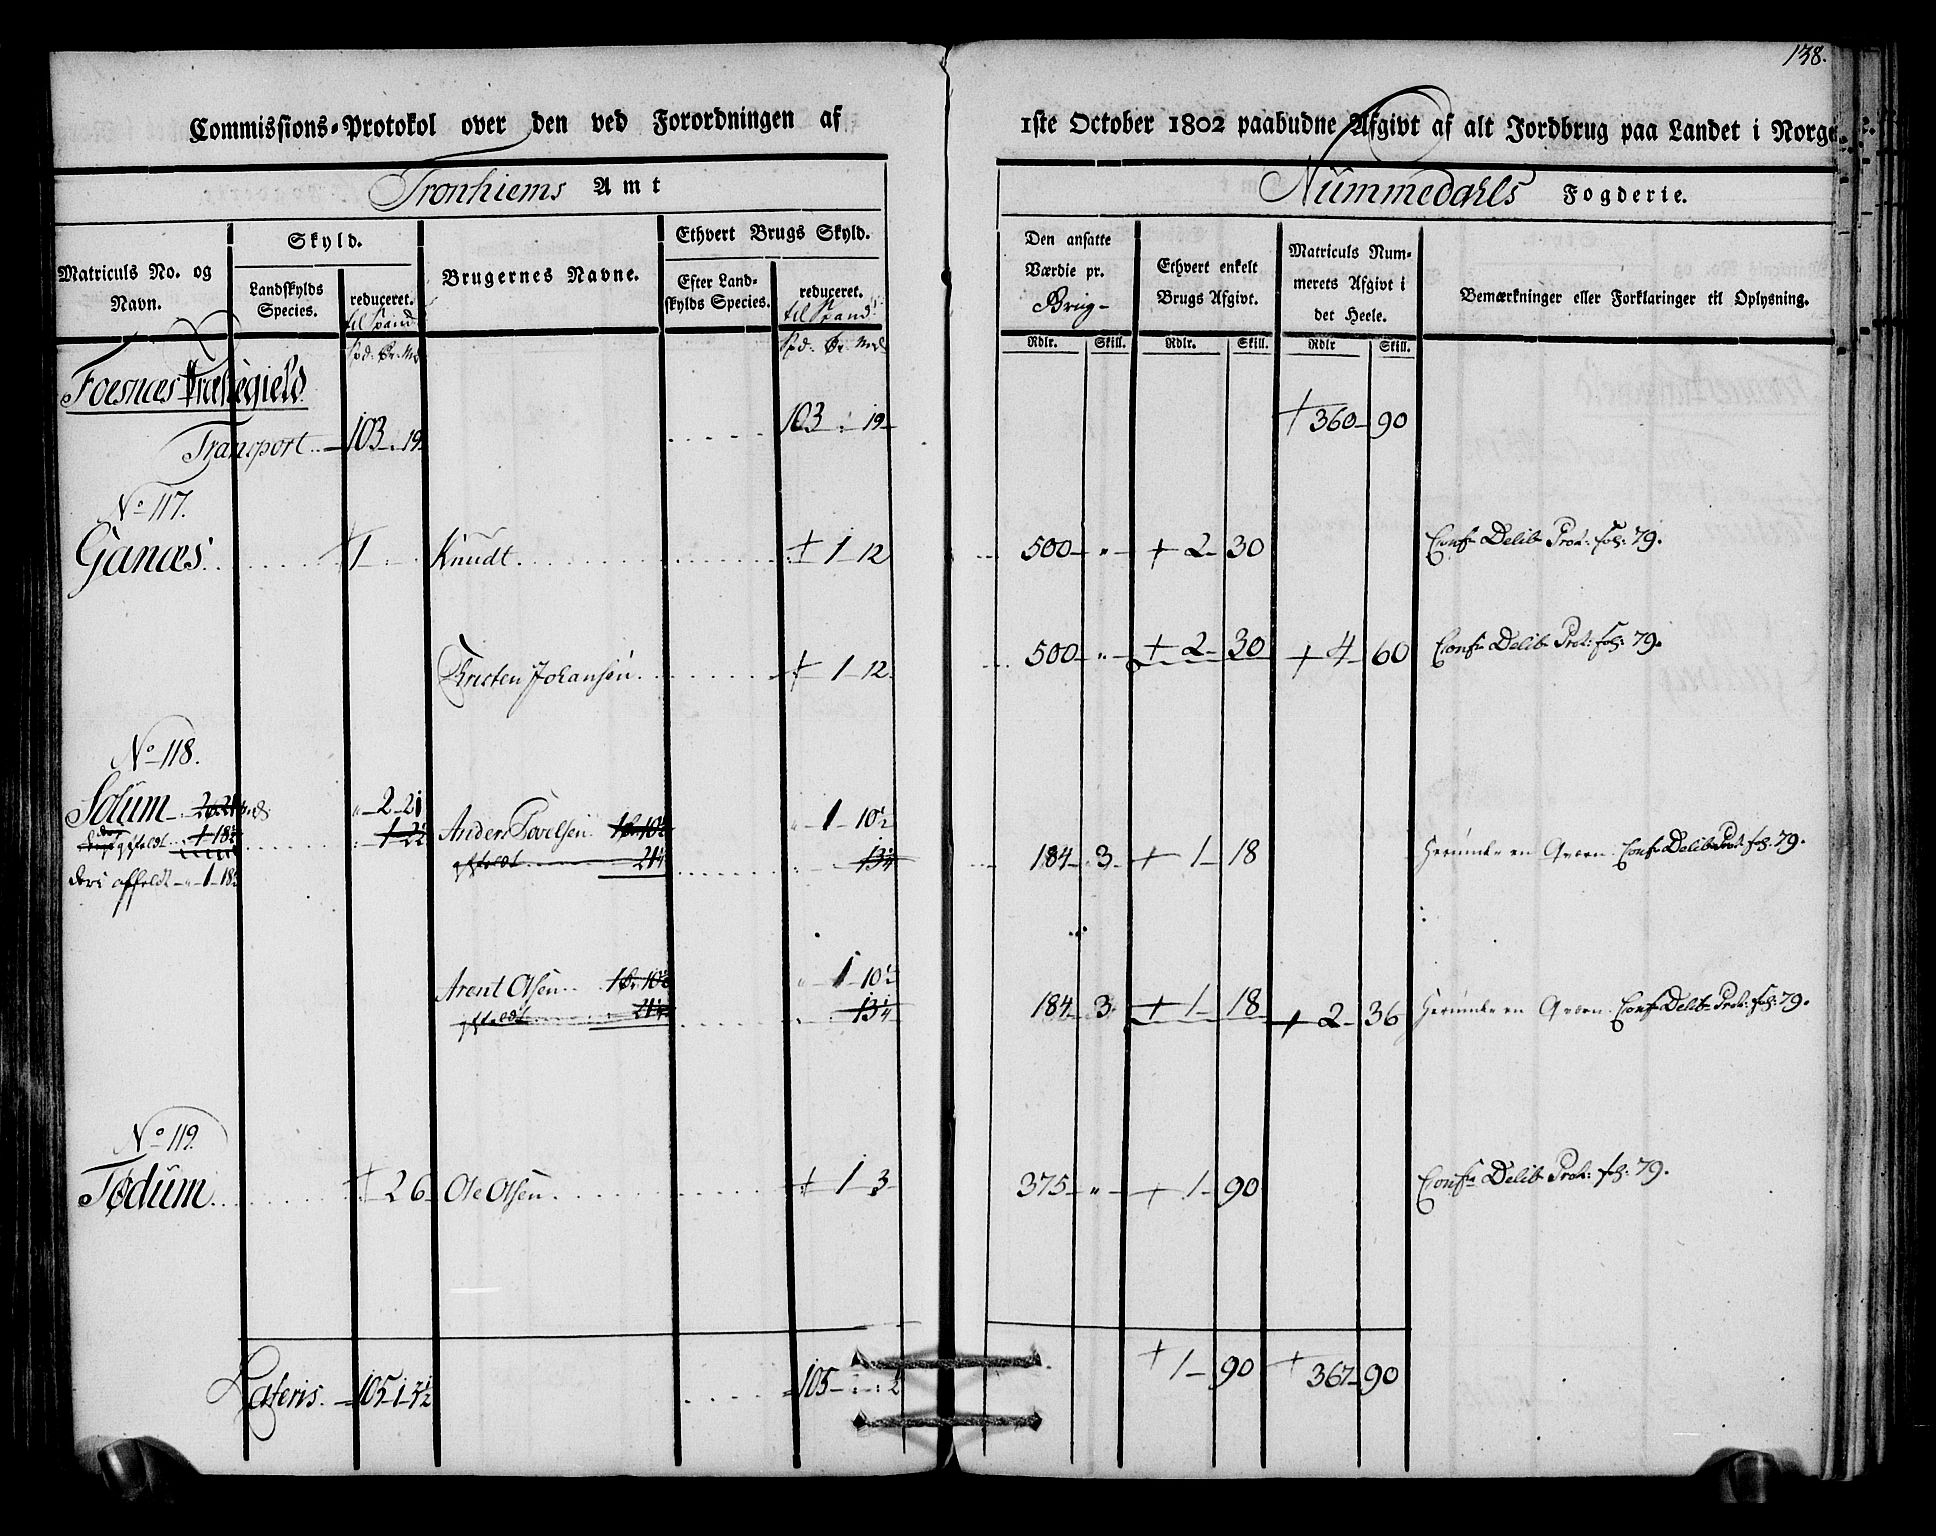 138.
Commissions-Protokol over den ved Forordningen af 1ste October 1802 paabudne Afgivt af alt Jordbrug paa Landet i Norge.
Tronhiems Amt
Nummedahls Fogderie.
Matriculs No. og Navn.
Skyld.
Landskylds Species.
reduceret. til Spand
Brugernes Navne.
Ethvert Brugs Skyld.
Efter Landskylds Species.
reduceret. til Spand
Den ansatte Værdie pr. Brug-
Ethvert enkelt Brugs Afgivt.
Matriculs Nummerets Afgivt i det Heele.
Bemærkninger eller Forklaringer til Oplysning.
Rdlr. Skill. Rdlr. Skill. Rdlr Skill.
Foesnæs Præstegield
Transport 103 : 19 103 : 19 + 360 90
No 117.
Ganæs 1 Knudt + 1 12 500 " + 2 30 Conf. Delib. Prot: fol: 79.
Christen Johansen + 1 12 500 " + 2 30 + 4 60 Conf. Delib. Prot: fol: 79.
No 118.
Solum " 2 21 Anders Povelsen " 1 10½ 184 3 + 1 18 Herunder en Qværn. Conf. Delib. Prot: fol: 79.
deri affeldt " 1 18
Arent Olsen " 1 10½ 184 3 + 1 18 + 2 36 Herunder en Qværn. Conf. Delib. Prot: fol: 79.
No 119.
Tødum + 2 6 Ole Olsen + 1 3 375 " + 1 90 Conf. Delib. Prot: fol: 79.
Lateris 105 1 105 + 1 90 + 367 90